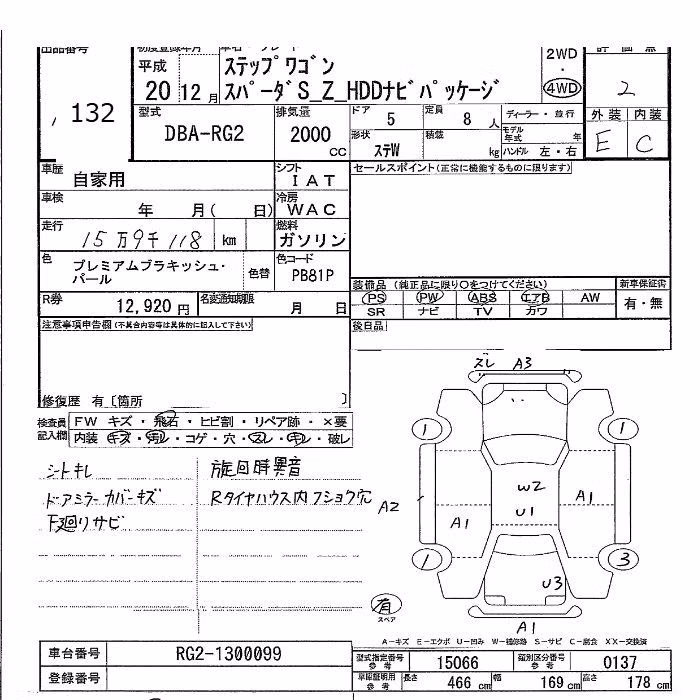 出品番号 初度登録年月 車名・グレード 2WD 評価点
132 平成 ステップワゴン ・ 2
20 12月 スパーダS_Z_HDDナビパッケージ 4WD
型式 排気量 ドア 定員 ディーラー・並行 外装 内装
DBA-RG2 2000 CC 5 8人 モデル年式 年 E C
形状 ステW 積載 kg ハンドル 左・右
車歴 自家用 シフト IAT セールスポイント(正常に機能するものに限ります)
車検 年 月( 日) 冷房 WAC
走行 15万9千118 km 燃料 ガソリン
色 プレミアムブラキッシュ・パール 色替 色コード PB81P
装備品 (純正品に限り○をつけてください) 新車保証書
R券 12,920円 名変通知期限 月 日 PS PW ABS エアB AW 有・無
SR ナビ TV カワ
注意事項申告欄(不具合内容等は具体的に記入して下さい) 後日品
修復歴 有〔箇所 〕
検査員記入欄 FW キズ・飛石・ヒビ割・リペア跡・×要
内装 キズ・汚レ・コゲ・穴・スレ・キレ・破レ
シートキレ 旋回時異音
ドアミラーカバーキズ Rタイヤハウス内フショウ穴
下廻りサビ
ズレ A3
1 1
A2 W2 A1
A1 U1
1 3
U3
有
スペア A1
A-キズ E-エクボ U-凹み W-補修跡 S-サビ C-腐食 XX-交換済
車台番号 RG2-1300099 型式指定番号参考 15066 類別区分番号参考 0137
登録番号 車庫証明用参考 長さ 466cm 幅 169cm 高さ 178cm